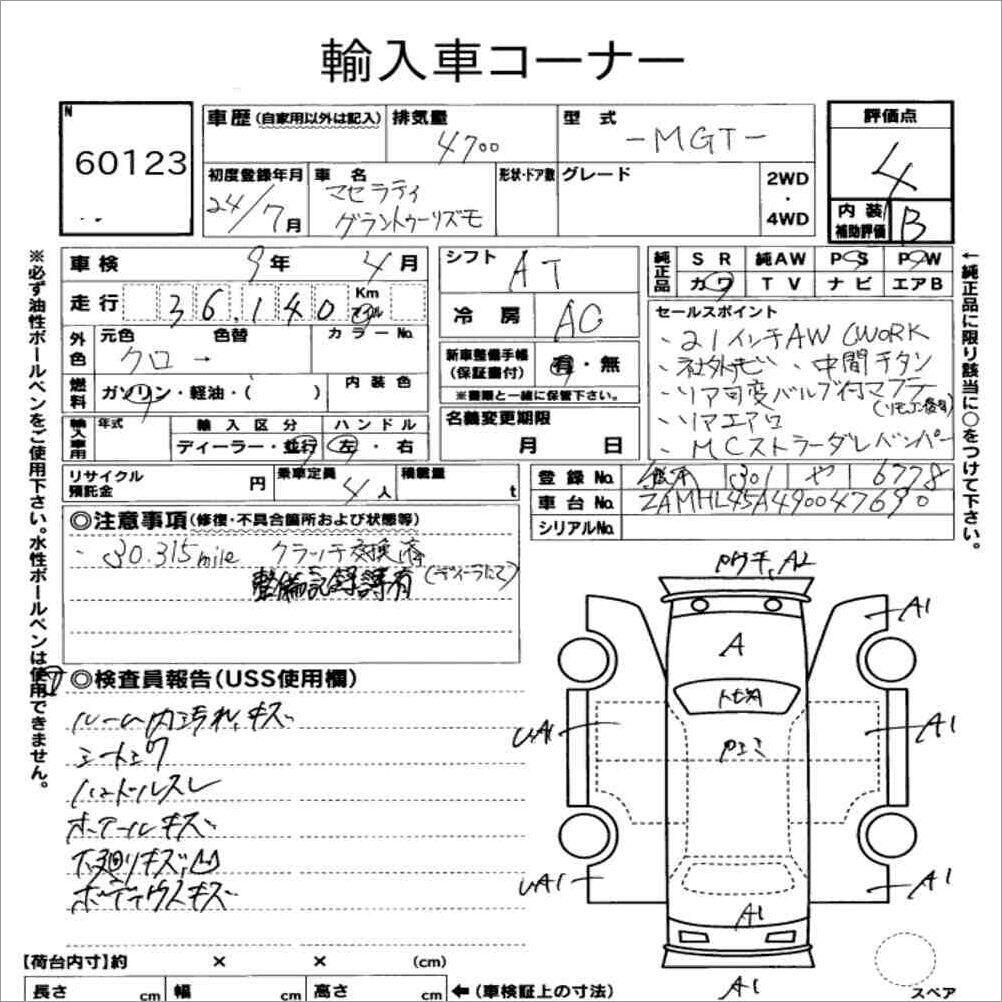 輸入車コーナー
N
60123
車歴(自家用以外は記入)
排気量
4700
型式
-MGT-
評価点
4
初度登録年月
24/7月
車名
マセラティ
グラントゥーリズモ
形状・ドア数
グレード
2WD
・
4WD
内装
補助評価
B
車検
9年 4月
走行
36.140
Km
マイル
シフト
AT
冷房
AC
純正品
SR 純AW PS PW
カワ TV ナビ エアB
セールスポイント
・21インチAW (WORK
・社外ナビ ・中間チタン
・リア可変バルブ付マフラー
(リモコン備有)
・リアエアロ
・MCストラダーレバンパー
外色
元色 色替 カラーNo.
クロ →
燃料
ガソリン・軽油・( )
内装色
新車整備手帳
(保証書付)
有・無
※書類と一緒に保管下さい。
輸入車用
年式
輸入区分
ハンドル
ディーラー・並行
左・右
名義変更期限
月 日
リサイクル
預託金
円
乗車定員
4人
積載量
t
登録No.
301 や 6778
車台No.
ZAMHL45A490047690
シリアルNo.
◎注意事項(修復・不具合箇所および状態等)
・30.315mile クラッチ交換済
(ディーラーにて)
整備記録簿有
◎検査員報告(USS使用欄)
ルーム内汚れ、キズ
シート
ハンドルスレ
ホイールキズ
下廻りキズ,凹
ボディウスキズ
A2
A
A1
A1
A1
A1
A1
A1
A1
A1
【荷台内寸】約 × × (cm)
長さ cm 幅 cm 高さ cm
←(車検証上の寸法)
スペア
※必ず油性ボールペンをご使用下さい。水性ボールペンは使用できません。
←純正品に限り該当に○をつけて下さい。